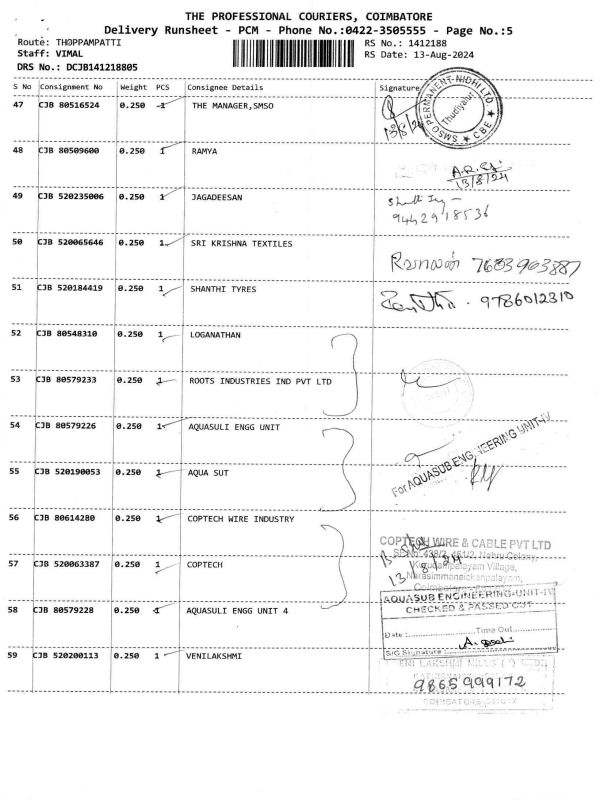 THE PROFESSIONAL COURIERS, COIMBATORE
Delivery Runsheet - PCM - Phone No.:0422-3505555 - Page No.:5
Route: THOPPAMPATTI
RS No.: 1412188
Staff: VIMAL
RS Date: 13-Aug-2024
DRS No.: DCJB141218805
S No Consignment No Weight PCS Consignee Details Signature
47 CJB 80516524 0.250 1 THE MANAGER,SMSO
SMSO PERMANENT NIDHI LTD
Thudiyalur
CBE
13/8/24
48 CJB 80509600 0.250 1 RAMYA
13/8/24
49 CJB 520235006 0.250 1 JAGADEESAN
9442918536
50 CJB 520065646 0.250 1 SRI KRISHNA TEXTILES
7683963887
51 CJB 520184419 0.250 1 SHANTHI TYRES
9786012310
52 CJB 80548310 0.250 1 LOGANATHAN
53 CJB 80579233 0.250 1 ROOTS INDUSTRIES IND PVT LTD
54 CJB 80579226 0.250 1 AQUASULI ENGG UNIT
For AQUASUB ENGINEERING UNIT-IV
55 CJB 520190053 0.250 1 AQUA SUT
56 CJB 80614280 0.250 1 COPTECH WIRE INDUSTRY
COPTECH WIRE & CABLE PVT LTD
57 CJB 520063387 0.250 1 COPTECH
Narasimmanaickenpalayam,
58 CJB 80579228 0.250 1 AQUASULI ENGG UNIT 4
AQUASUB ENGINEERING-UNIT-IV
CHECKED & PASSED OUT
Date : Time Out
SIG Signature :
59 CJB 520200113 0.250 1 VENILAKSHMI
9865999172